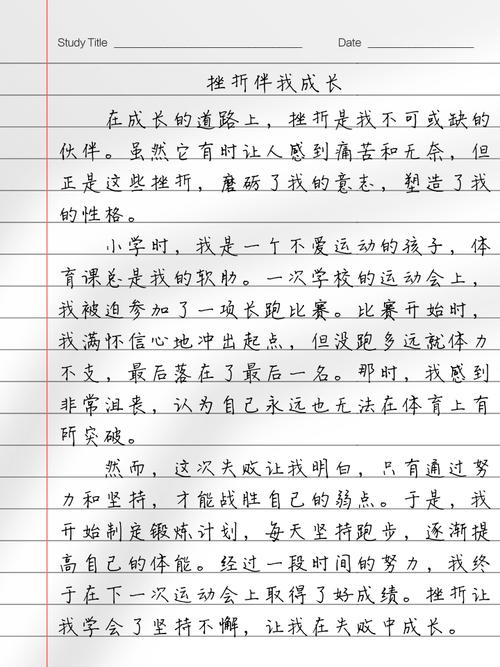 Study Title Date
挫折伴我成长
在成长的道路上，挫折是我不可或缺的
伙伴。虽然它有时让人感到痛苦和无奈，但
正是这些挫折，磨砺了我的意志，塑造了我
的性格。
小学时，我是一个不爱运动的孩子，体
育课总是我的软肋。一次学校的运动会上，
我被迫参加了一项长跑比赛。比赛开始时，
我满怀信心地冲出起点，但没跑多远就体力
不支，最后落在了最后一名。那时，我感到
非常沮丧，认为自己永远也无法在体育上有
所突破。
然而，这次失败让我明白，只有通过努
力和坚持，才能战胜自己的弱点。于是，我
开始制定锻炼计划，每天坚持跑步，逐渐提
高自己的体能。经过一段时间的努力，我终
于在下一次运动会上取得了好成绩。挫折让
我学会了坚持不懈，让我在失败中成长。